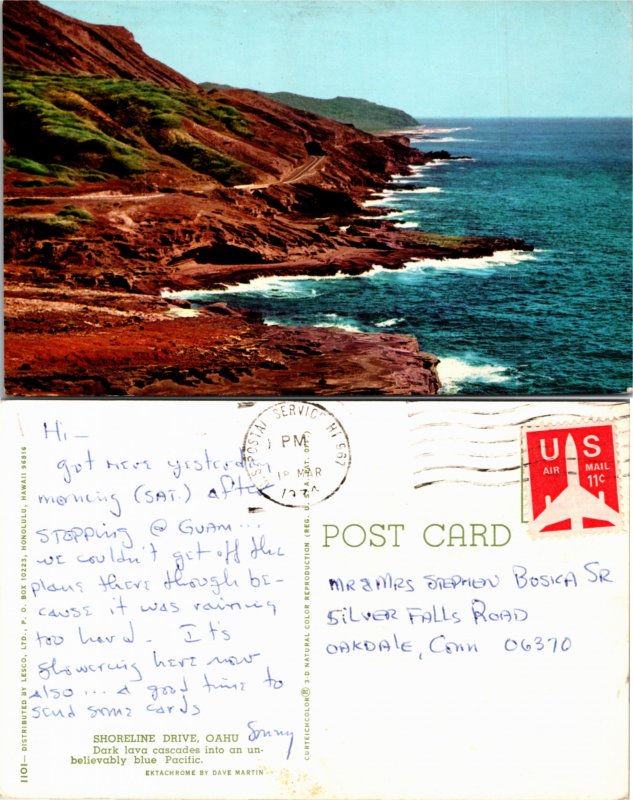 Hi-
got here yesterday
morning (SAT.) after
STOPPING @ GUAM...
we couldn't get off the
plane there though be-
cause it was raining
too hard. It's
showering here now
also... a good time to
send some cards
Sonny
SHORELINE DRIVE, OAHU
Dark lava cascades into an un-
believably blue Pacific.
EKTACHROME BY DAVE MARTIN
1101— DISTRIBUTED BY LESCO, LTD., P. O. BOX 10223, HONOLULU, HAWAII 96816
POSTAL SERVICE HI 967
PM
MAR
CURTEICHCOLOR® 3-D NATURAL COLOR REPRODUCTION (REG. U.S.A. PAT. OFF.)
US
AIR MAIL
11¢
POST CARD
MR & MRS STEPHEN BOSICA SR
SILVER FALLS ROAD
OAKDALE, CONN 06370